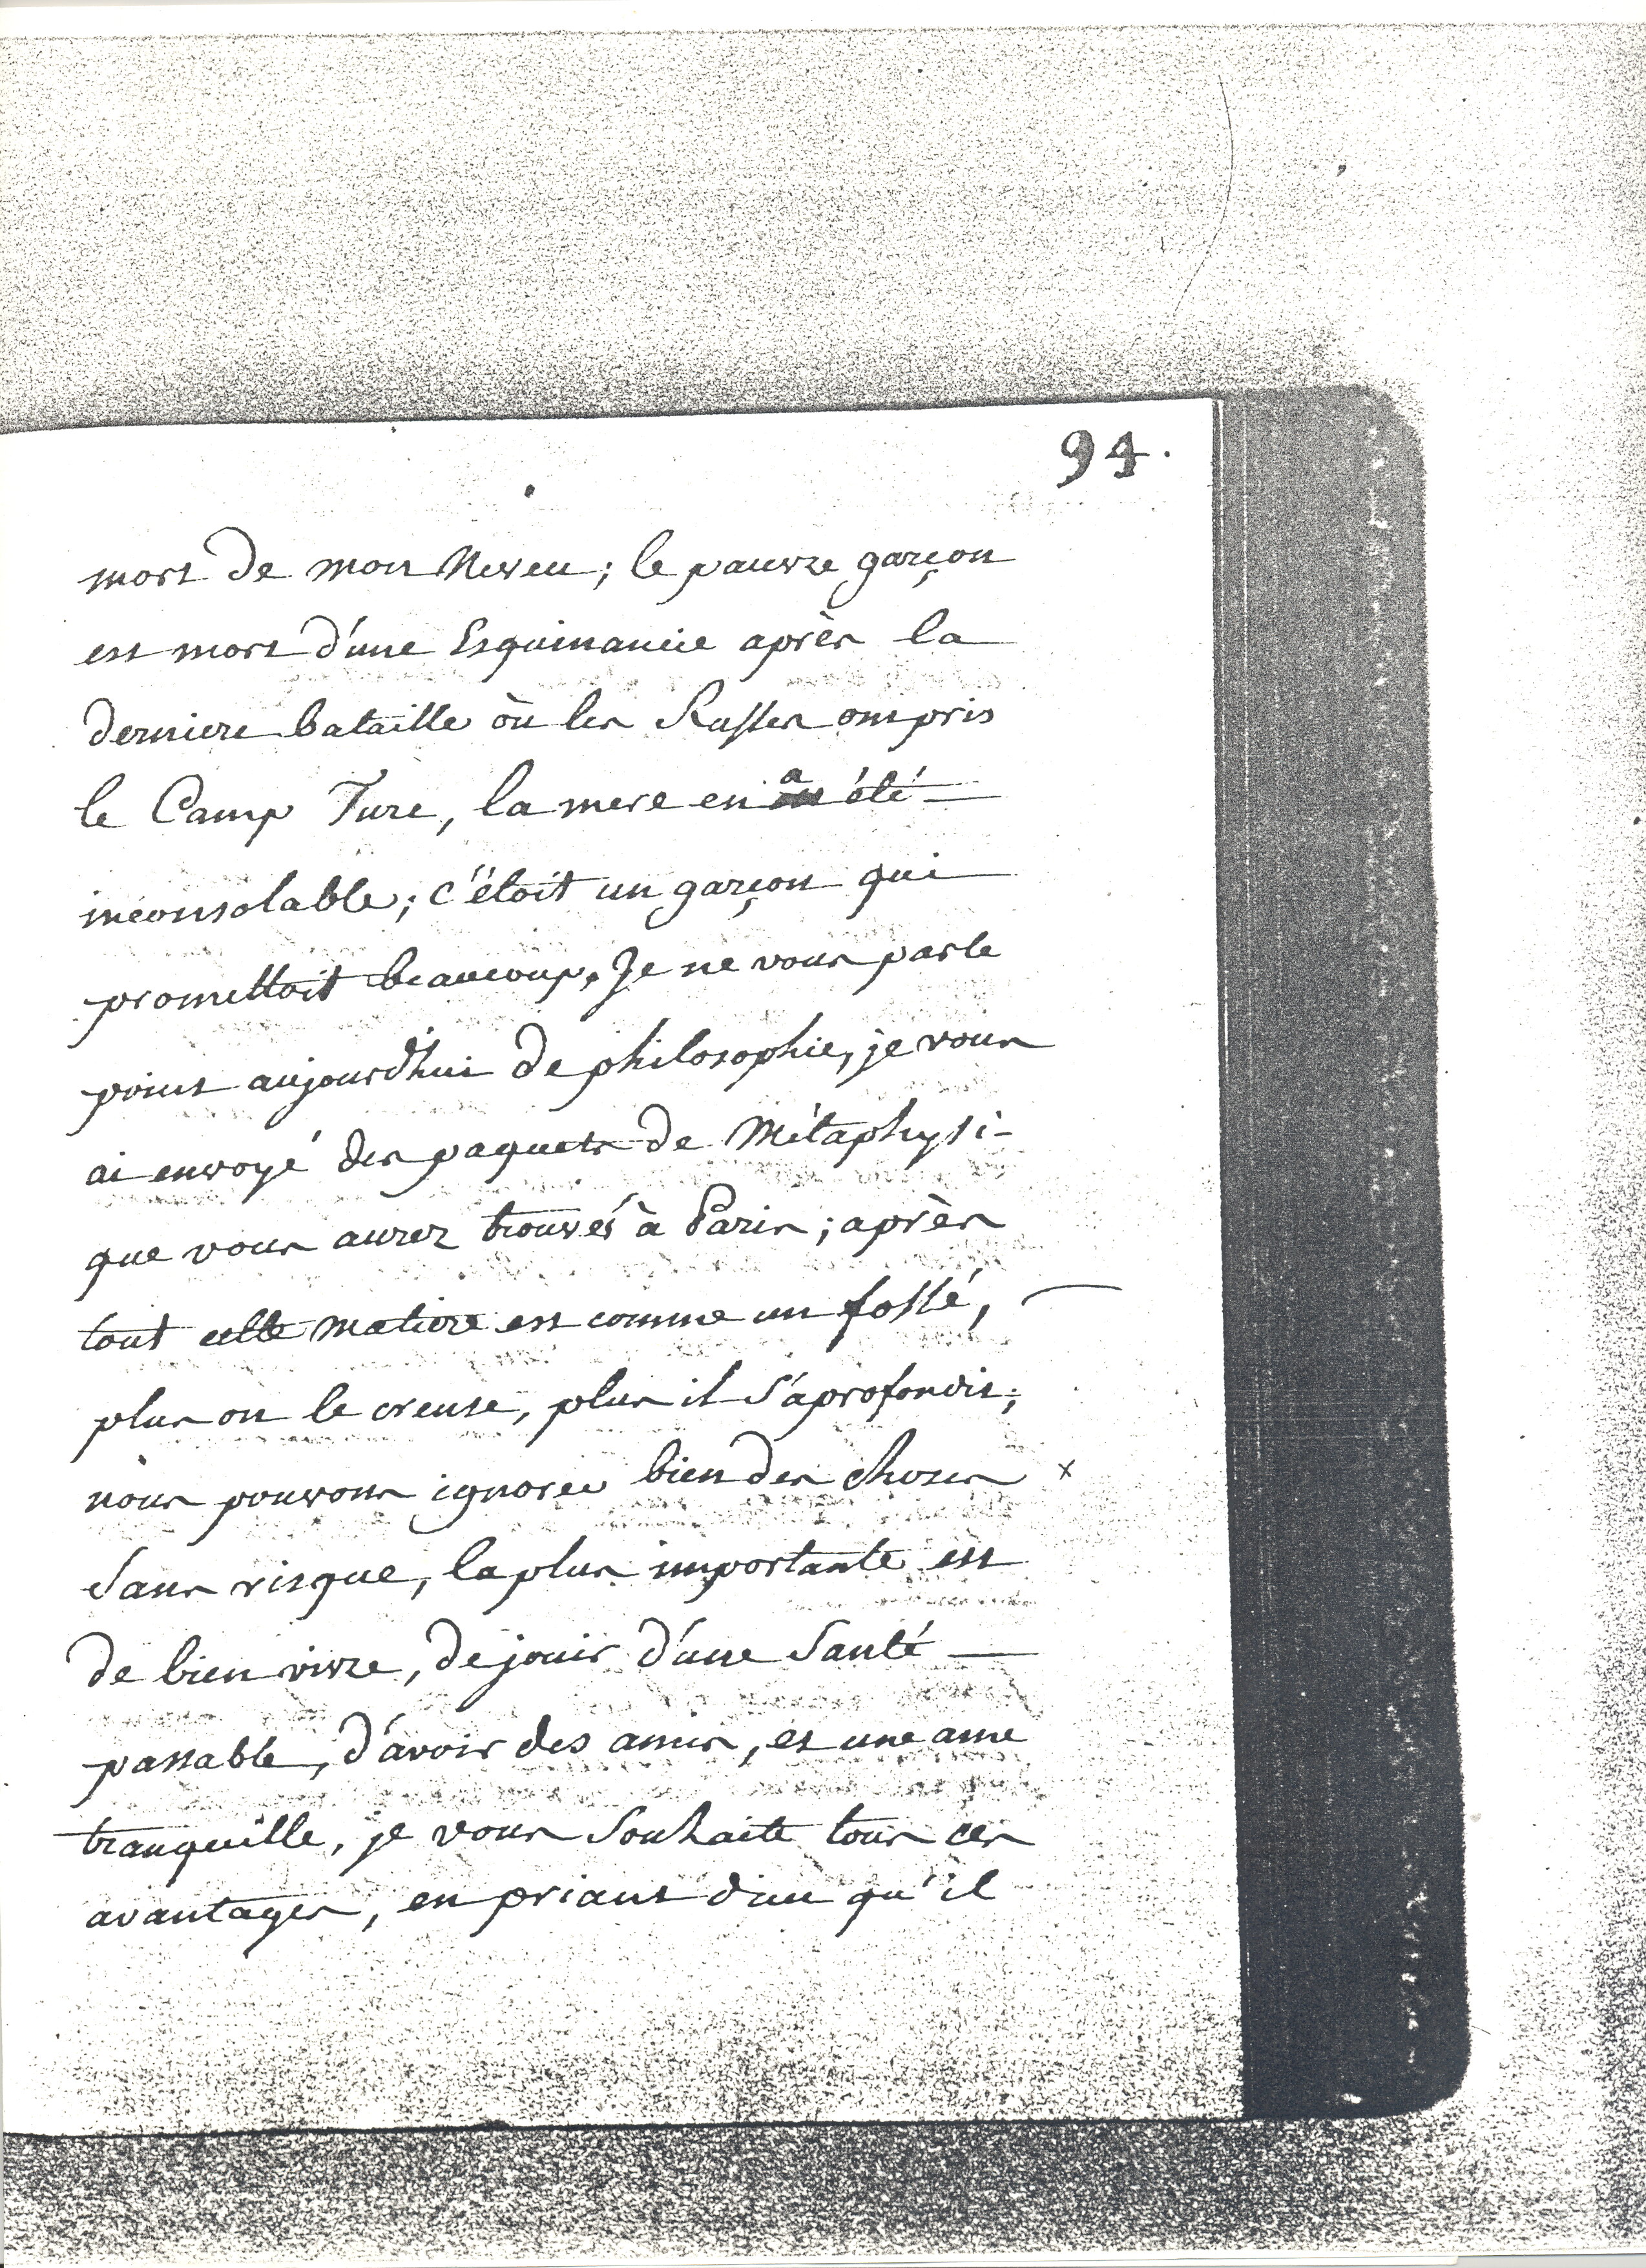 94.
mort de mon Neveu; le pauvre garçon
est mort d'une Esquinancie après la
derniere bataille où les Russes ont pris
le Camp Turc, la mere en a été
inconsolable; c'étoit un garçon qui
promettoit beaucoup. Je ne vous parle
point aujourd'hui de philosophie, je vous
ai envoyé des paquets de Métaphysi-
que vous aurez trouvés à Paris; après
tout cette matiere est comme un fossé,
plus on le creuse, plus il s'aprofondit;
nous pouvons ignorer bien des choses x
sans risque, la plus importante est
de bien vivre, de jouir d'une santé
passable, d'avoir des amis, et une ame
tranquille, je vous souhaite tous ces
avantages, en priant dieu qu'il